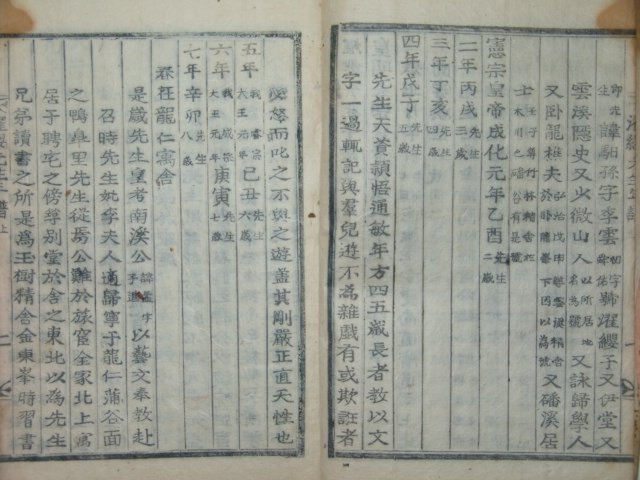 諱馹孫字季雲 濯纓子又伊堂又
雲溪隱史又火微山人 以所居地名為號 又詠歸學人
又卧龍樵夫 又磻溪居
士
憲宗皇帝成化元年乙酉 先生二歲
二年丙戌 先生三歲
三年丁亥 先生四歲
四年戊子 先生五歲
先生天資穎悟通敏年方四五歲長者敎以文
字一過輒記與羣兒遊不為雜戲有或欺誑者
必怒而叱之不與之遊盖其剛嚴正直天性也
五年 我睿宗大王元年 己丑 先生六歲
六年 我成宗大王元年 庚寅 先生七歲
七年辛卯 先生八歲
春在龍仁寓舍
是歲先生皇考南溪公 以藝文奉敎赴
召時先生妣李夫人適歸寧于龍仁蒲谷面
之鴨皐里先生從焉公難於旅宦全家北上寓
居于聘宅之傍築別堂於舍之東北以為先生
兄弟讀書之所是為玉樹精舍金東峯時習書